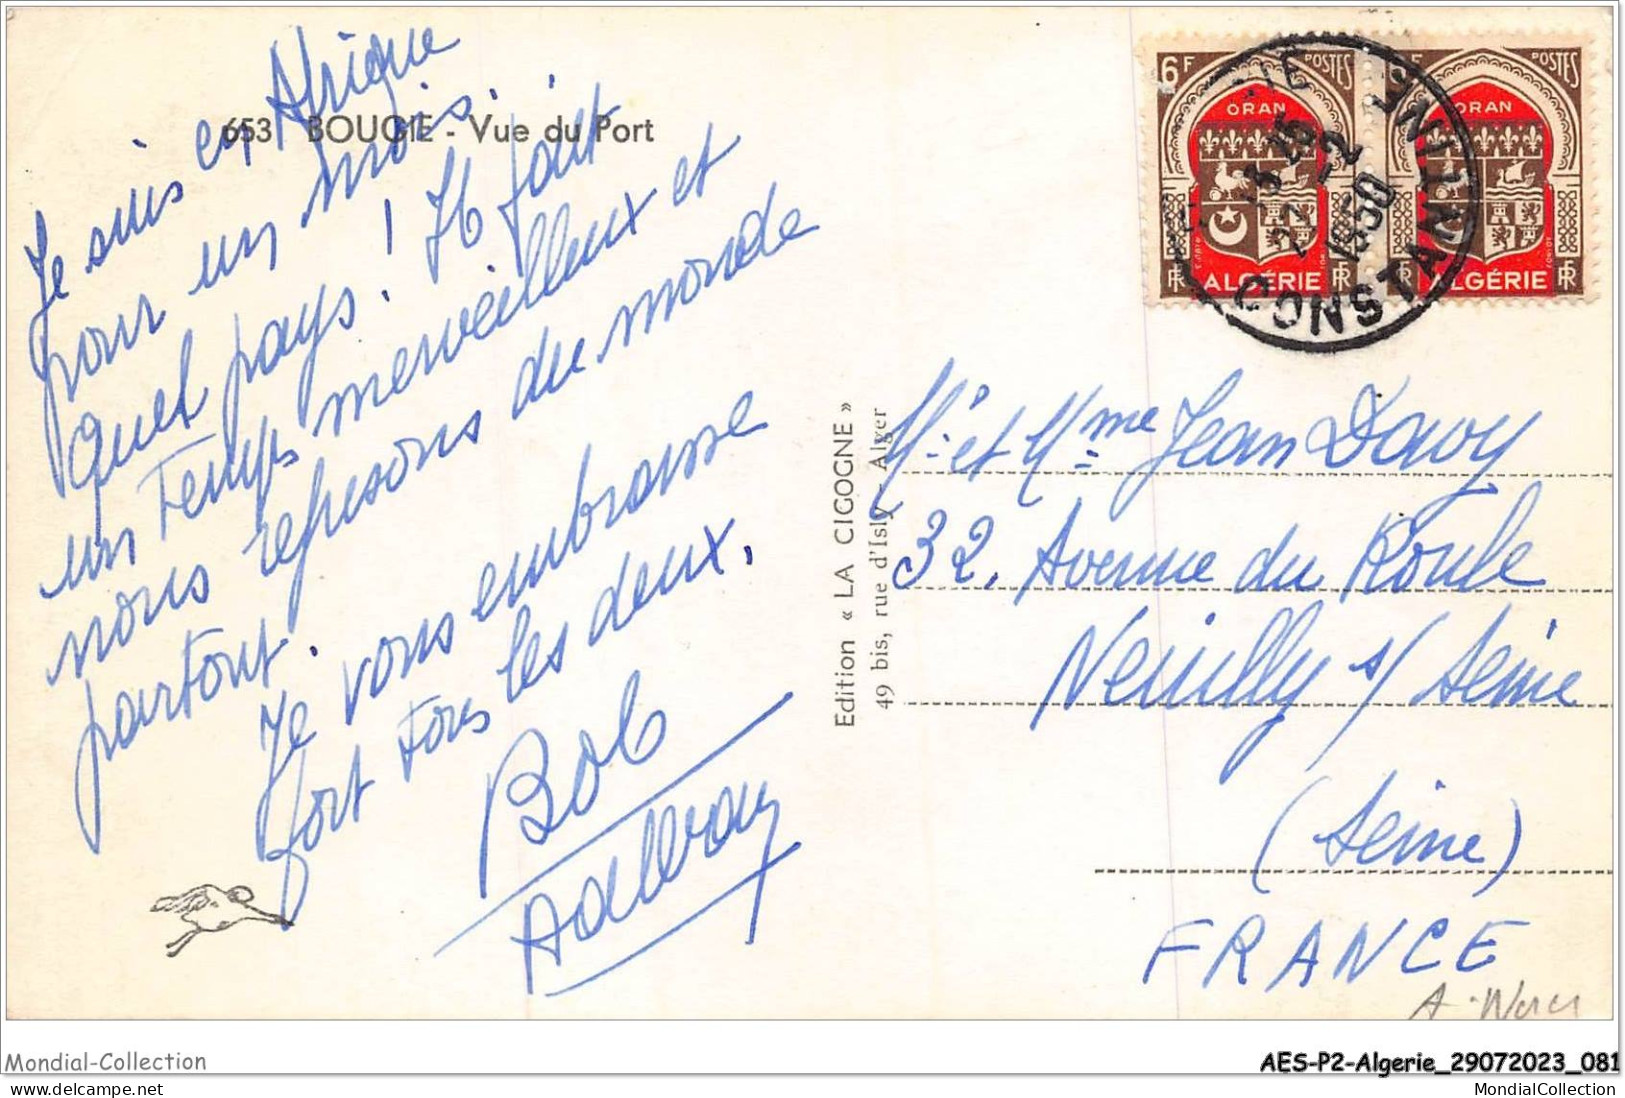 653 BOUGIE - Vue du Port
Je suis en Afrique
pour un mois.
quel pays ! Il fait
un temps merveilleux et
nous refusons du monde
partout.
Je vous embrasse
fort tous les deux.
Bob
Edition « LA CIGOGNE »
49 bis, rue d'Isly - Alger
6F POSTES
ORAN
ALGÉRIE
RF
6F POSTES
ORAN
ALGÉRIE
RF
CONSTANTINE
13 15
22 -2
1950
Mr et Mme Jean Davy
32, Avenue du Roule
Neuilly s/ Seine
(Seine)
FRANCE
Mondial-Collection
AES-P2-Algerie_29072023_081
MondialCollection